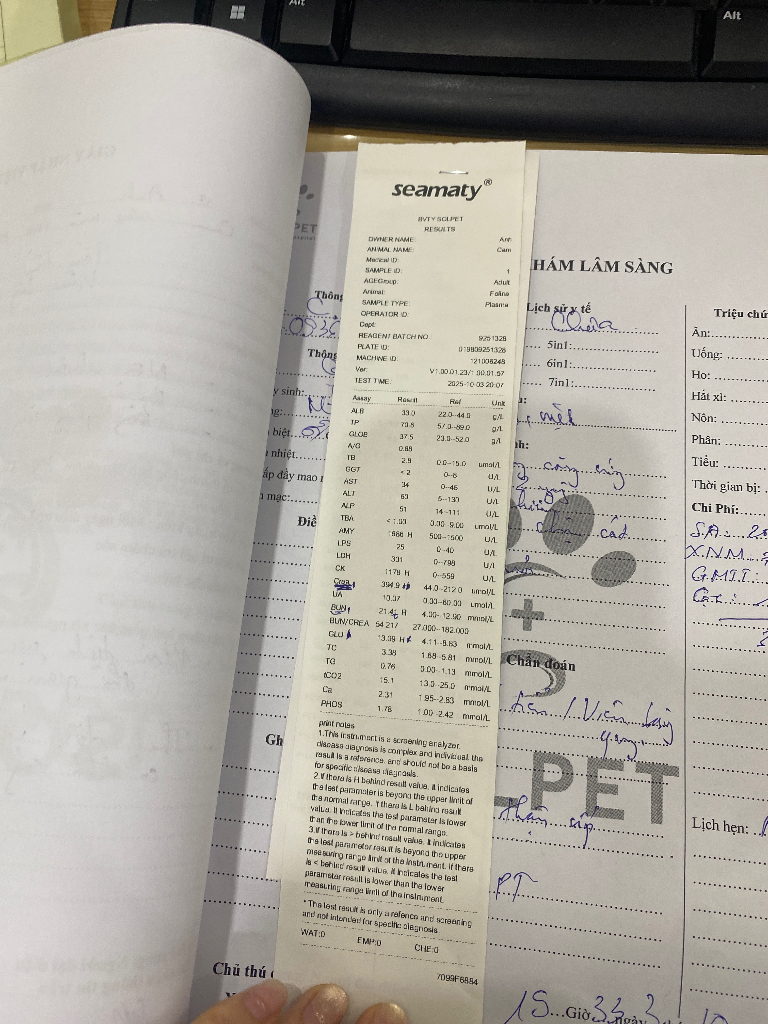 Alt
Alt
seamaty®
BVTY SOLPET
RESULTS
OWNER NAME: Anh
ANIMAL NAME: Cam
Medical ID:
SAMPLE ID: 1
AGEGroup: Adult
Animal: Feline
SAMPLE TYPE: Plasma
OPERATOR ID:
Dept:
REAGENT BATCH NO: 9251328
PLATE ID: 019809251328
MACHINE ID: 121006248
Ver: V1.00.01.23/1.00.01.57
TEST TIME: 2025-10-03 20:07
Assay Result Ref Unit
ALB 33.0 22.0--44.0 g/L
TP 70.5 57.0--89.0 g/L
GLOB 37.5 23.0--52.0 g/L
A/G 0.88
TB 2.9 0.0--15.0 umol/L
GGT < 2 0--8 U/L
AST 34 0--48 U/L
ALT 63 5--130 U/L
ALP 51 14--111 U/L
TBA 0.00--9.00 umol/L
AMY 1666 H 500--1500 U/L
LPS 25 0--40 U/L
LDH 331 0--798 U/L
CK 1178 H 0--559 U/L
Crea 394.9 H 44.0--212.0 umol/L
UA 10.37 0.00--60.00 umol/L
BUN 21.41 H 4.00--12.90 mmol/L
BUN/CREA 54.217 27.000--182.000
GLU 13.09 H 4.11--8.83 mmol/L
TC 3.38 1.68--5.81 mmol/L
TG 0.76 0.00--1.13 mmol/L
tCO2 15.1 13.0--25.0 mmol/L
Ca 2.31 1.95--2.83 mmol/L
PHOS 1.78 1.00--2.42 mmol/L
print notes
1.This instrument is a screening analyzer,
disease diagnosis is complex and individual, the
result is a reference, and should not be a basis
for specific disease diagnosis.
2.If there is H behind result value, it indicates
the test parameter is beyond the upper limit of
the normal range. If there is L behind result
value, it indicates the test parameter is lower
than the lower limit of the normal range.
3.If there is > behind result value, it indicates
the test parameter result is beyond the upper
measuring range limit of the instrument. If there
is < behind result value, it indicates the test
parameter result is lower than the lower
measuring range limit of the instrument.
* The test result is only a refence and screening
and not intended for specific diagnosis.
WAT:0 EMP:0 CHE:0
7099F6884
HÁM LÂM SÀNG
Lịch sử y tế
Chưa
5in1:
6in1:
7in1:
Chẩn đoán
Viêm bàng
quang
thận cấp
PT
LPET
15 Giờ 33 ngày
Triệu chứ
Ăn:
Uống:
Ho:
Hắt xì:
Nôn:
Phân:
Tiểu:
Thời gian bị:
Chi Phí:
S.A:
XNM
Lịch hẹn:
Thôn
Thôn
y sinh:
biệt
nhiệt
ấp đầy mao
mạc:
Điề
Gh
Chủ thú